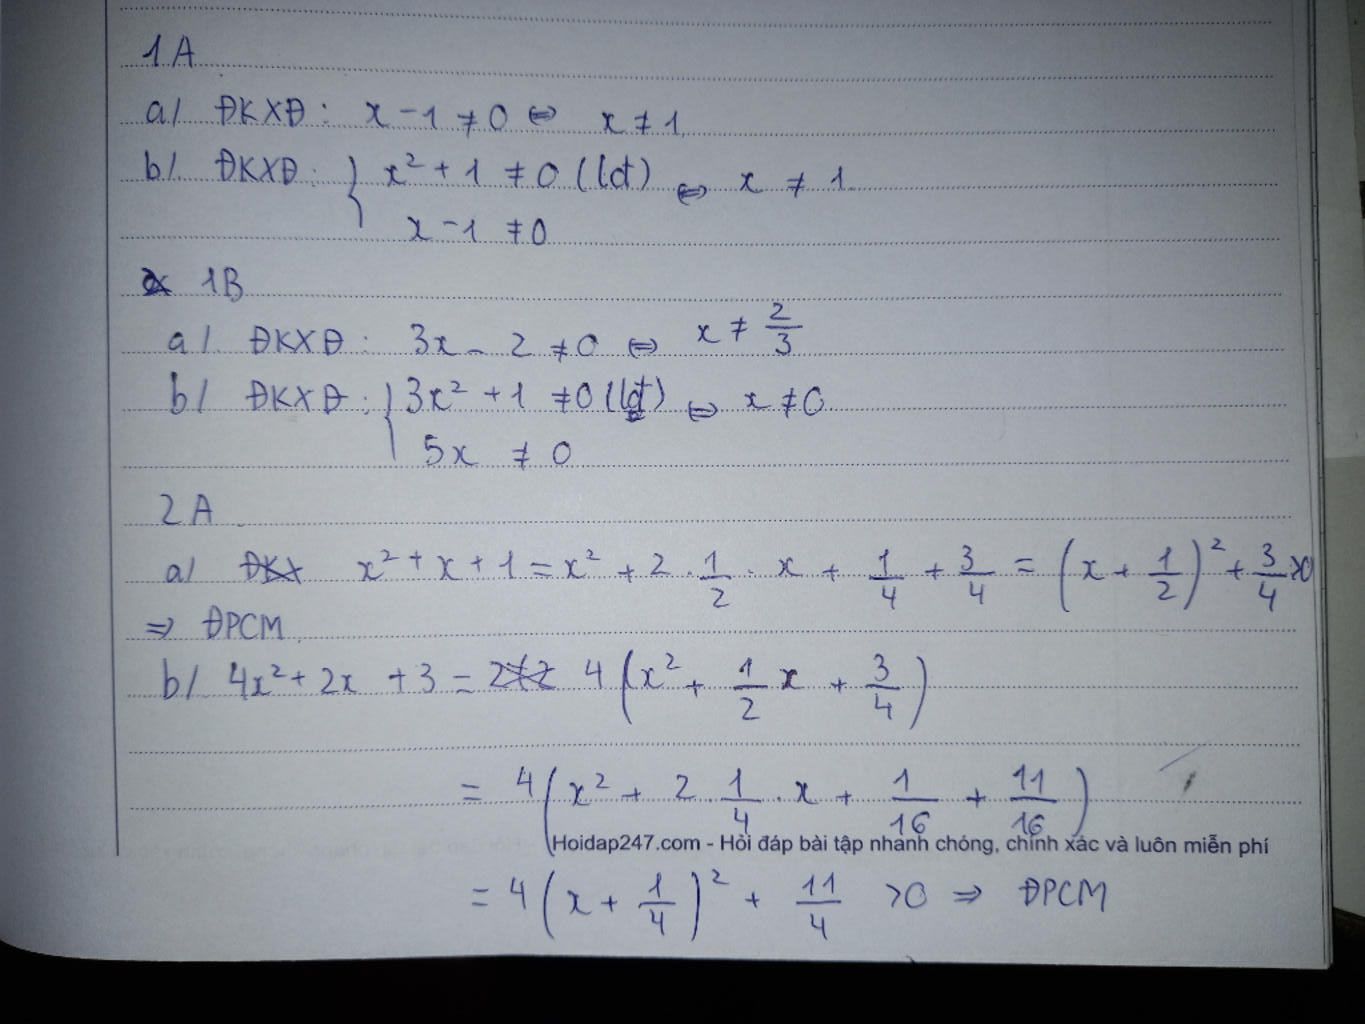 1A
a/ ĐKXĐ: x - 1 ≠ 0 ⇔ x ≠ 1
b/ ĐKXĐ: { x² + 1 ≠ 0 (lđ) ⇔ x ≠ 1
x - 1 ≠ 0
1B
a/ ĐKXĐ: 3x - 2 ≠ 0 ⇔ x ≠ 2/3
b/ ĐKXĐ: { 3x² + 1 ≠ 0 (lđ) ⇔ x ≠ 0
5x ≠ 0
2A
a/ x² + x + 1 = x² + 2 . 1/2 . x + 1/4 + 3/4 = (x + 1/2)² + 3/4 >0
⇒ ĐPCM
b/ 4x² + 2x + 3 = 4(x² + 1/2 x + 3/4)
= 4(x² + 2 . 1/4 . x + 1/16 + 11/16)
Hoidap247.com - Hỏi đáp bài tập nhanh chóng, chính xác và luôn miễn phí
= 4(x + 1/4)² + 11/4 >0 ⇒ ĐPCM